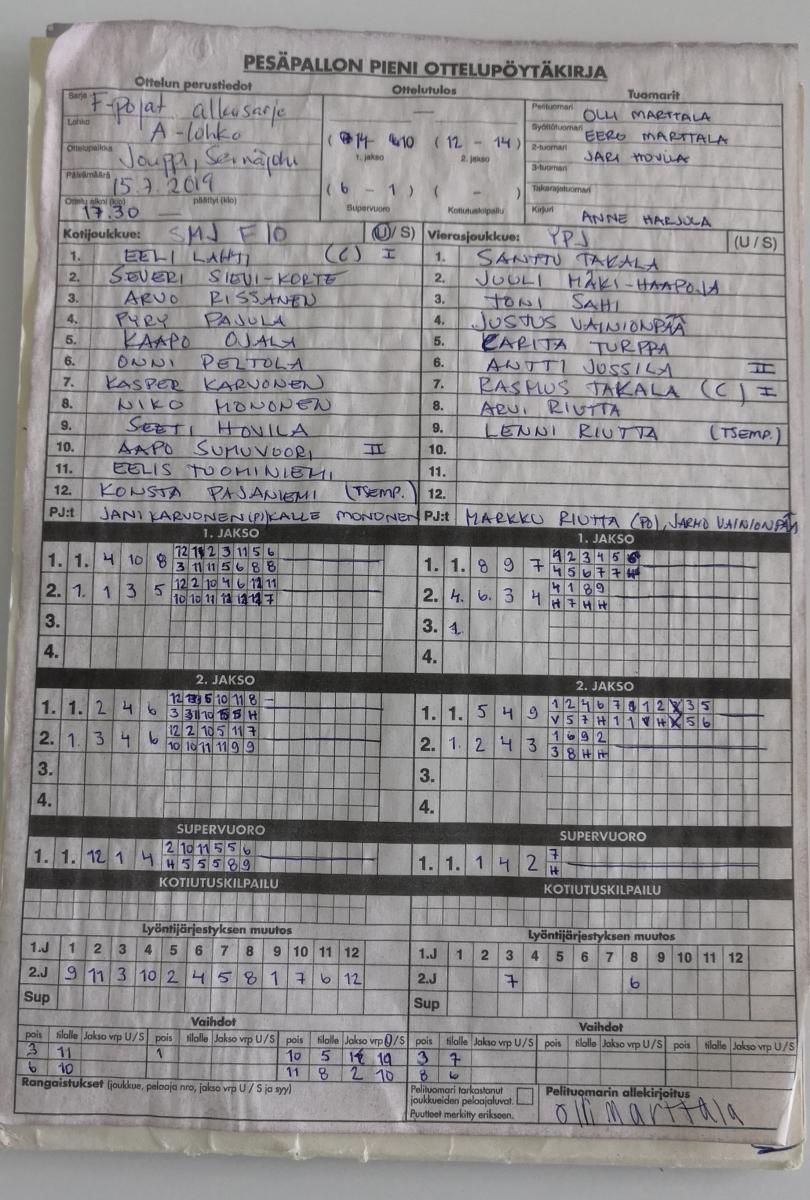 PESÄPALLON PIENI OTTELUPÖYTÄKIRJA
Ottelun perustiedot
Sarja F-pojat alkusarja
Lohko A-lohko
Ottelupaikka Jouppi, Seinäjoki
Päivämäärä 15.7.2019
Ottelu alkoi (klo) päättyi (klo)
17.30 —
Ottelutulos
(14 - 10) (12 - 14)
1. jakso 2. jakso
(6 - 1) ( - )
Supervuoro Kotiutuskilpailu
Tuomarit
Pelituomari OLLI MARTTALA
Syöttötuomari EERO MARTTALA
2-tuomari JARI HOVILA
3-tuomari
Takarajatuomari
Kirjuri ANNE HARJULA
Kotijoukkue: SMJ F10 (U/S)
1. EELI LAHTI (C) I
2. SEVERI SIEVI-KORTE
3. ARVO RISSANEN
4. PYRY PAJULA
5. KAAPO OJALA
6. ONNI PELTOLA
7. KASPER KARVONEN
8. NIKO MONONEN
9. SEETI HOVILA
10. AAPO SUMUVUORI II
11. EELIS TUOMINIEMI
12. KONSTA PAJANIEMI (TSEMP.)
PJ:t JANI KARVONEN (PJ) KALLE MONONEN
Vierasjoukkue: YPJ (U/S)
1. SANTTU TAKALA
2. JUULI MÄKI-HAAPOJA
3. TONI SAHI
4. JUSTUS VAINIONPÄÄ
5. KARITA TURPPA
6. ANTTI JUSSILA II
7. RASMUS TAKALA (C) I
8. ARVI RIUTTA
9. LENNI RIUTTA (TSEMP.)
10.
11.
12.
PJ:t MARKKU RIUTTA (PJ), JARMO VAINIONPÄÄ
1. JAKSO
1. 1. 4 10 8
3 11 11 5 6 8 8
2. 1. 1 3 5 12 2 10 4 6 12 11
10 10 11 12 12 12 7
3.
4.
1. JAKSO
1. 1. 8 9 7 1 2 3 4 5
4 5 6 7 7 H
2. 4. 6. 3 4 4 1 8 9
H 7 H H
3. 1
4.
2. JAKSO
1. 1. 2 4 6
2. 1. 3 4 6 12 2 10 5 11 7
10 10 11 11 9 9
3.
4.
2. JAKSO
1. 1. 5 4 9
2. 1. 2 4 3 1 6 9 2
3 8 H H
3.
4.
SUPERVUORO
1. 1. 12 1 4 2 10 11 5 5 6
H 5 5 5 8 9
SUPERVUORO
1. 1. 1 4 2 7
H
KOTIUTUSKILPAILU
KOTIUTUSKILPAILU
Lyöntijärjestyksen muutos
1.J 1 2 3 4 5 6 7 8 9 10 11 12
2.J 9 11 3 10 2 4 5 8 1 7 6 12
Sup
Lyöntijärjestyksen muutos
1.J 1 2 3 4 5 6 7 8 9 10 11 12
2.J 7 6
Sup
Vaihdot
pois tilalle Jakso vrp U/S pois tilalle Jakso vrp U/S pois tilalle Jakso vrp U/S
3 11 1 10 5
6 10 11 8 2 10
Vaihdot
pois tilalle Jakso vrp U/S pois tilalle Jakso vrp U/S pois tilalle Jakso vrp U/S
3 7
8 6
Rangaistukset (joukkue, pelaaja nro, jakso vrp U / S ja syy)
Pelituomari tarkastanut
joukkueiden pelaajaluvat.
Puutteet merkitty erikseen.
Pelituomarin allekirjoitus
Olli Marttala